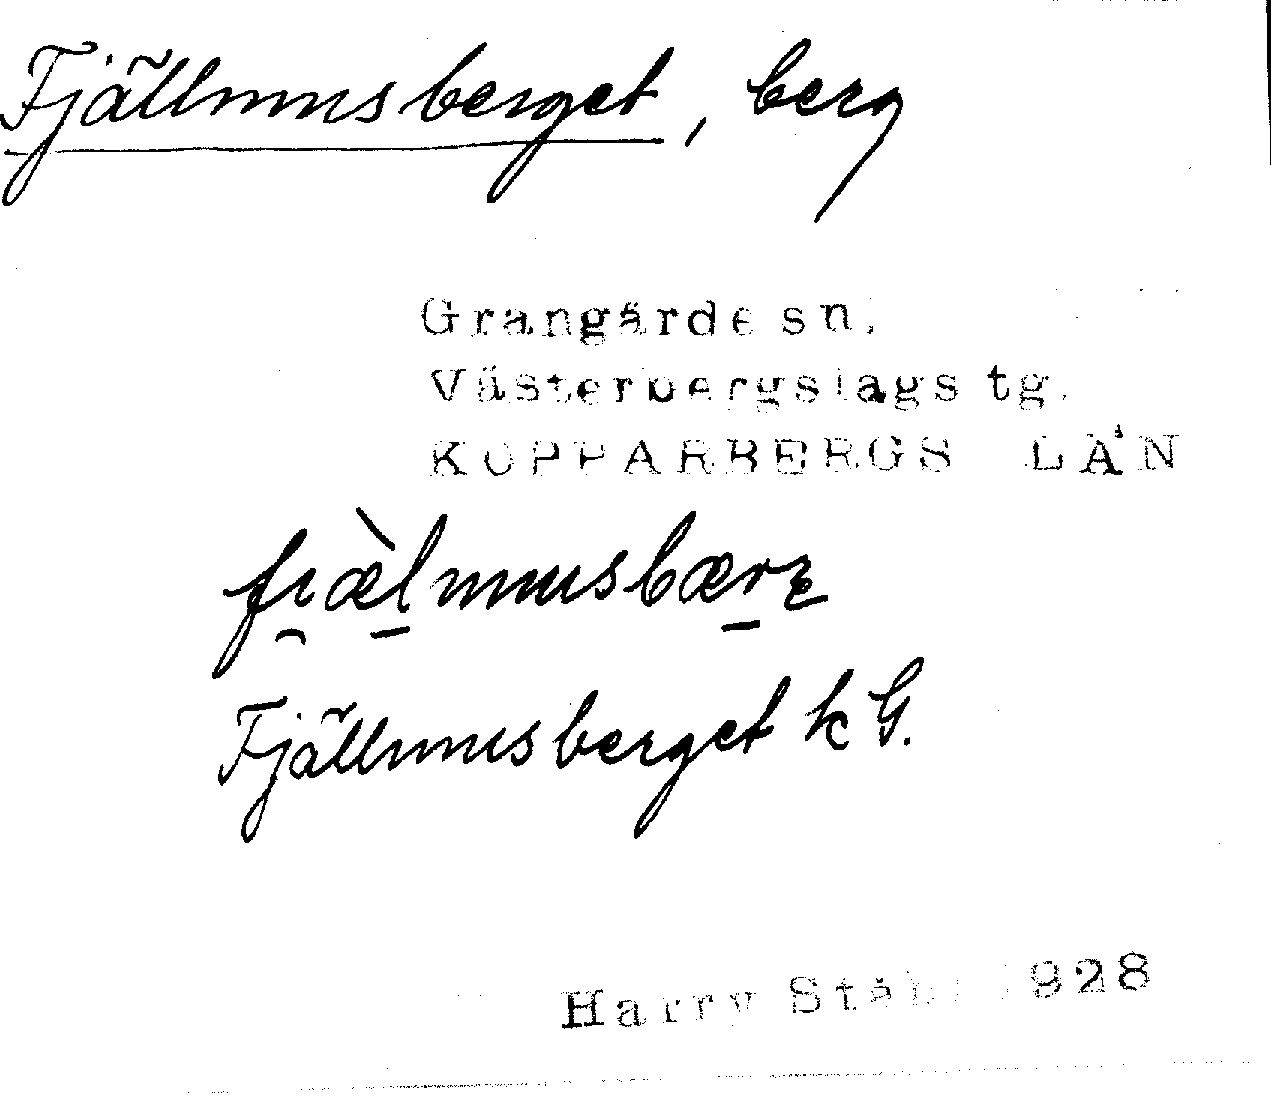 Fjällmusberget, berg
Grangärde sn.
Västerbergslags tg.
KOPPARBERGS LÄN
Fjällmusberget k G.
Harry Ståhl 1928